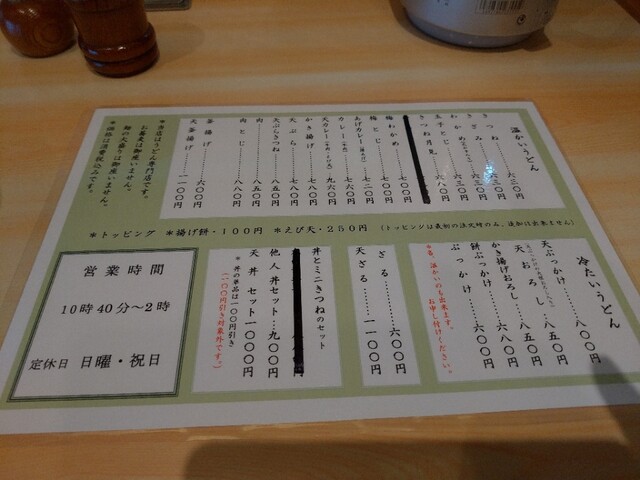 温かいうどん
きつね……六三〇円
きざみ……六三〇円
わかめ……六三〇円
玉子とじ……六三〇円
きつね月見…六八〇円
梅わかめ……七〇〇円
梅とじ……七〇〇円
あげカレー
七二〇円
カレー
七六〇円
天カレー
九六〇円
かき揚げ……七八〇円
天ぷら……八五〇円
天ぷらきつね…八五〇円
肉……八五〇円
肉とじ……八八〇円
釜揚げ……六〇〇円
天釜揚げ……一一〇〇円
＊当店はうどん専門店です。
お蕎麦は御座いません。
麺の大盛りは御座いません。
＊価格は消費税込みです。
＊トッピング ＊揚げ餅・100円 ＊えび天・250円 (トッピングは最初の注文時のみ、追加は出来ません)
冷たいうどん
天ぶっかけ……八〇〇円
天おろし…八五〇円
かき揚げおろし…八五〇円
餅ぶっかけ……六八〇円
ぶっかけ……六〇〇円
＊冬、温かいのも出来ます。
お申し付けください。
ざる……六〇〇円
天ざる……一一〇〇円
丼とミニきつねのセット
他人丼セット…九〇〇円
天丼セット一〇〇〇円
＊丼の単品は一〇〇円引き
(一〇〇円引き対象外です。)
営業時間
10時40分～2時
定休日 日曜・祝日